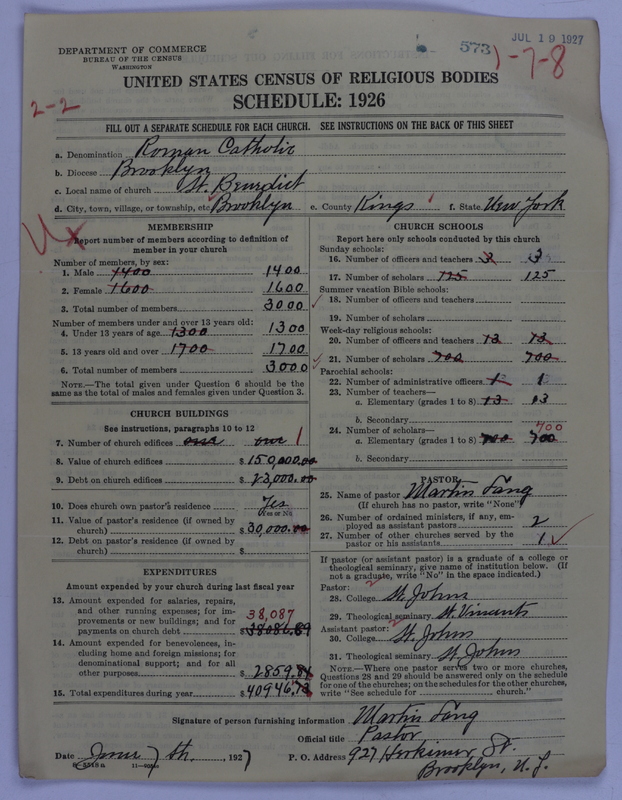 JUL 19 1927
573
1-7-8
DEPARTMENT OF COMMERCE
BUREAU OF THE CENSUS
WASHINGTON
UNITED STATES CENSUS OF RELIGIOUS BODIES
2-2
SCHEDULE: 1926
FILL OUT A SEPARATE SCHEDULE FOR EACH CHURCH. SEE INSTRUCTIONS ON THE BACK OF THIS SHEET
a. Denomination Roman Catholic
b. Diocese Brooklyn
c. Local name of church St. Benedict
d. City, town, village, or township, etc. Brooklyn e. County Kings f. State New York
MEMBERSHIP
Report number of members according to definition of
member in your church
Number of members, by sex:
1. Male 1400 1400
2. Female 1600 1600
3. Total number of members 3000
Number of members under and over 13 years old:
4. Under 13 years of age 1300 1300
5. 13 years old and over 1700 1700
6. Total number of members 3000
NOTE.—The total given under Question 6 should be the
same as the total of males and females given under Question 3.
CHURCH BUILDINGS
See instructions, paragraphs 10 to 12
7. Number of church edifices one one 1
8. Value of church edifices $150,000.00
9. Debt on church edifices $23,000.00
10. Does church own pastor's residence Yes
(Yes or No)
11. Value of pastor's residence (if owned by
church) $30,000.00
12. Debt on pastor's residence (if owned by
church) $
EXPENDITURES
Amount expended by your church during last fiscal year
13. Amount expended for salaries, repairs,
and other running expenses; for im-
provements or new buildings; and for
payments on church debt $38086.89 38,087
14. Amount expended for benevolences, in-
cluding home and foreign missions; for
denominational support; and for all
other purposes $2859.84
15. Total expenditures during year $40946.73
CHURCH SCHOOLS
Report here only schools conducted by this church
Sunday schools:
16. Number of officers and teachers 3 3
17. Number of scholars 125 125
Summer vacation Bible schools:
18. Number of officers and teachers
19. Number of scholars
Week-day religious schools:
20. Number of officers and teachers 13 13
21. Number of scholars 700 700
Parochial schools:
22. Number of administrative officers 1 1
23. Number of teachers—
a. Elementary (grades 1 to 8) 13 13
b. Secondary
24. Number of scholars— 700
a. Elementary (grades 1 to 8) 700 700
b. Secondary
PASTOR
25. Name of pastor Martin Lang
(If church has no pastor, write "None")
26. Number of ordained ministers, if any, em-
ployed as assistant pastors 2
27. Number of other churches served by the
pastor or his assistants 1
If pastor (or assistant pastor) is a graduate of a college or
theological seminary, give name of institution below. (If
not a graduate, write "No" in the space indicated.)
Pastor:
28. College St. Johns
29. Theological seminary St. Vincents
Assistant pastor:
30. College St. Johns
31. Theological seminary St. Johns
NOTE.—Where one pastor serves two or more churches,
Questions 28 and 29 should be answered only on the schedule
for one of the churches; on the schedules for the other churches,
write "See schedule for church."
Signature of person furnishing information Martin Lang
Official title Pastor
Date June 7th, 1927 P. O. Address 927 Herkimer St.
Brooklyn, N.Y.